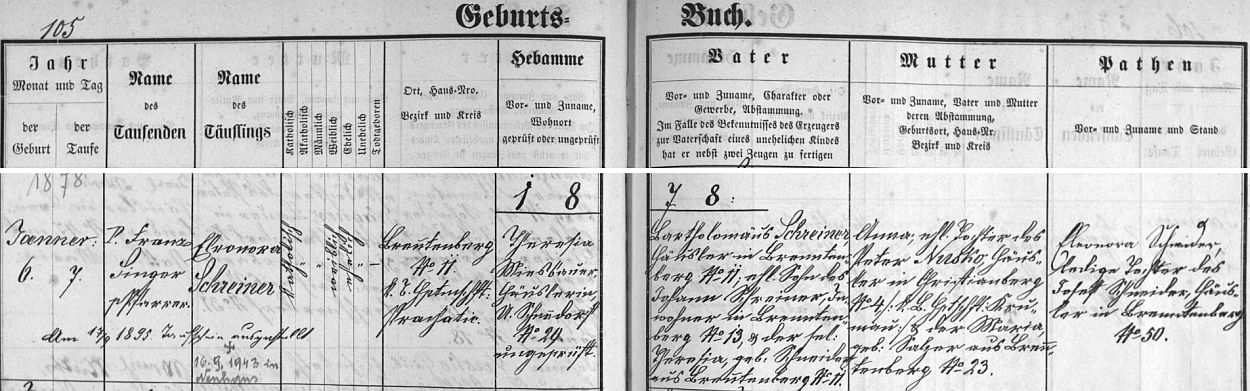 105
Geburts-
Buch.
Jahr
Monat und Tag
der Geburt
der Taufe
Name
des
Taufenden
Name
des
Täuflings
Katholisch
Akatholisch
Männlich
Weiblich
Ehelich
Unehelich
Todtgeboren
Ort, Haus-Nro.
Bezirk und Kreis
Hebamme
Vor- und Zuname,
Wohnort
geprüft oder ungeprüft
Vater
Vor- und Zuname, Charakter oder
Gewerbe, Abstammung.
Im Falle des Bekenntnisses des Erzeugers
zur Vaterschaft eines unehelichen Kindes
hat er nebst zwei Zeugen zu fertigen
Mutter
Vor- und Zuname, Vater und Mutter
deren Abstammung,
Geburtsort, Haus-Nr.
Bezirk und Kreis
Pathen
Vor- und Zuname und Stand
1878
1 8
7 8:
Jaenner:
6. 7.
P. Franz
Singer
Pfarrer.
Eleonora
Schreiner
Brentenberg
No 11.
Prachatic.
Theresia
Wiesbauer,
Häuslerin,
No 29
ungeprüft.
Bartholomäus Schreiner
Häusler in Brennten-
berg No 11, ehl. Sohn des
Johann Schreiner, In-
wohner in Brennten-
berg No 13, & der sel:
Theresia, geb. Schneider
aus Brentenberg No 11.
Anna, ehl. Tochter des
Peter Nusko, Häus-
ler in Christianberg
No 4, k. b. Krum-
mau: & der Maria,
geb: Salzer aus Bren-
tenberg No 23.
Eleonora Schneider,
ledige Tochter des
Josef Schneider, Häus-
ler in Brenntenberg
No 50.
Am 17/9 1895 Taufschein ausgestellt
16.9.1943 in
Neuhaus